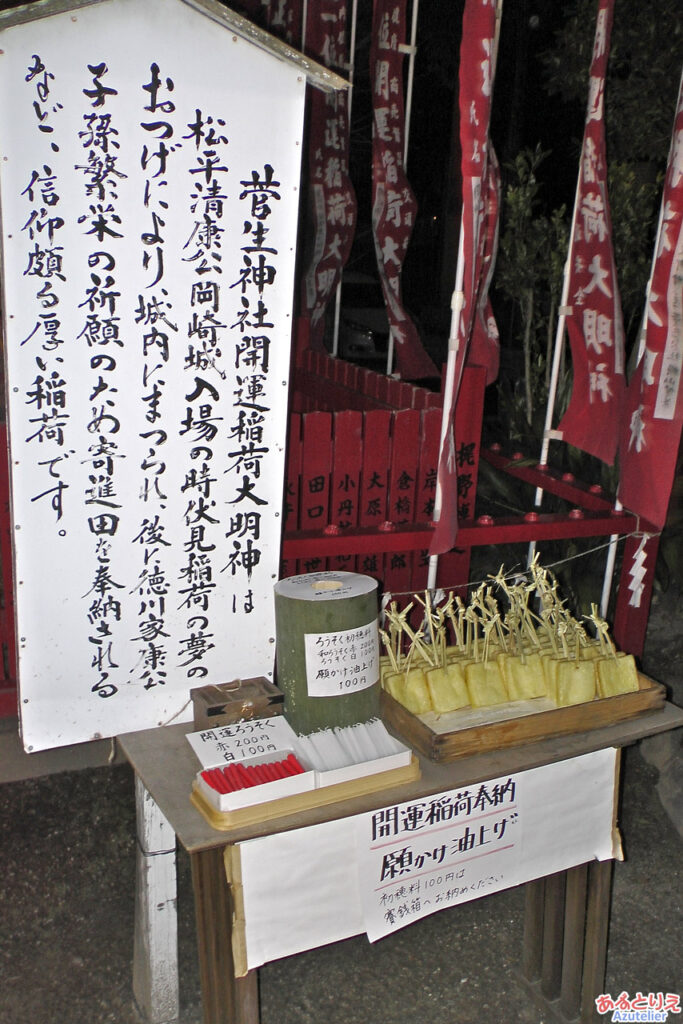 菅生神社開運稲荷大明神は
松平清康公岡崎城入場の時伏見稲荷の夢の
おつげにより、城内にまつられ、後に徳川家康公
子孫繁栄の祈願のため寄進田を奉納される
など、信仰頗る厚い稲荷です。
開運稲荷大明神
稲荷大明神
大原
倉橋
小丹
田口
梶野
ろうそく初穂料
和ろうそく赤200円
ろうそく白100円
願かけ油上げ
100円
開運ろうそく
赤200円
白100円
開運稲荷奉納
願かけ油上げ
初穂料100円は
賽銭箱へお納めください
あるとりえ
Azutelier